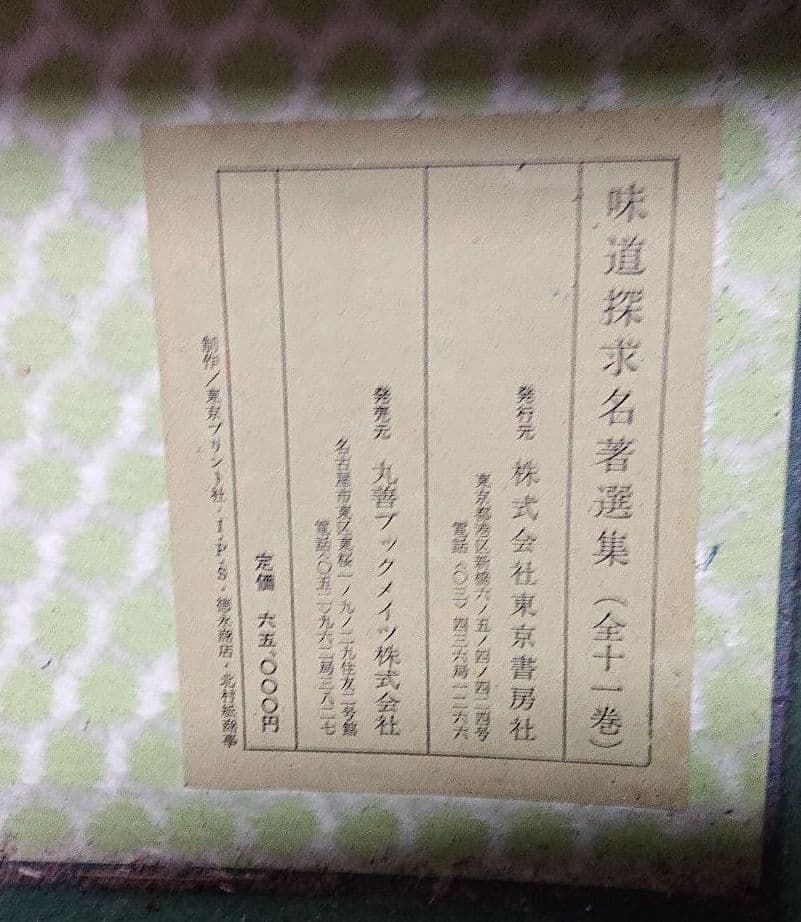 味道探求名著選集(全十一巻)
発行元 株式会社東京書房社
東京都港区新橋六ノ五ノ四ノ四二四号
電話〈〇三〉四三六局一二六六
発売元 丸善ブックメイツ株式会社
名古屋市東区東桜一ノ九ノ二九住友二号館
電話〈〇五二〉九六二局三八二七
定価 六五、〇〇〇円
制作/東京プリント社・I・P・S・徳永商店・北村紙商事